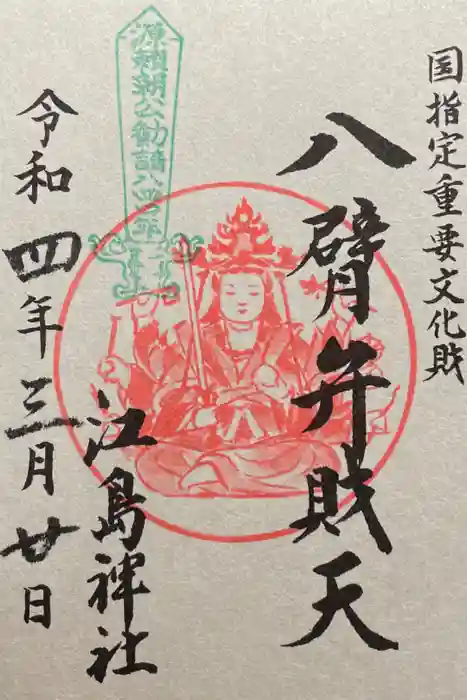 国指定重要文化財
八臂弁財天
源頼朝公勧請八百四十年
江島神社
令和四年三月廿日